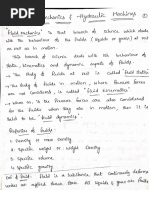 Fluid Mechanics & Hydraulic Machines
"Fluid mechanics" is that branch of science which deals
with the behaviour of the fluids (liquids or gases) at rest
as well as in motion.
This branch of science deals with the
statics, kinematics and dynamic aspects of fluids.
The study of fluids at rest is called "fluid statics"
The study of fluids in motion, where pressure forces
are not considered, is called "fluid kinematics"
when the pressure forces are also considered
for the fluids when they are in motion, that is
said to be "fluid dynamics".
Properties of fluids
Density or mass density
Specific weight or weight density
Specific volume
Specific gravity
Fluid is a substance that continuously deforms
under an applied